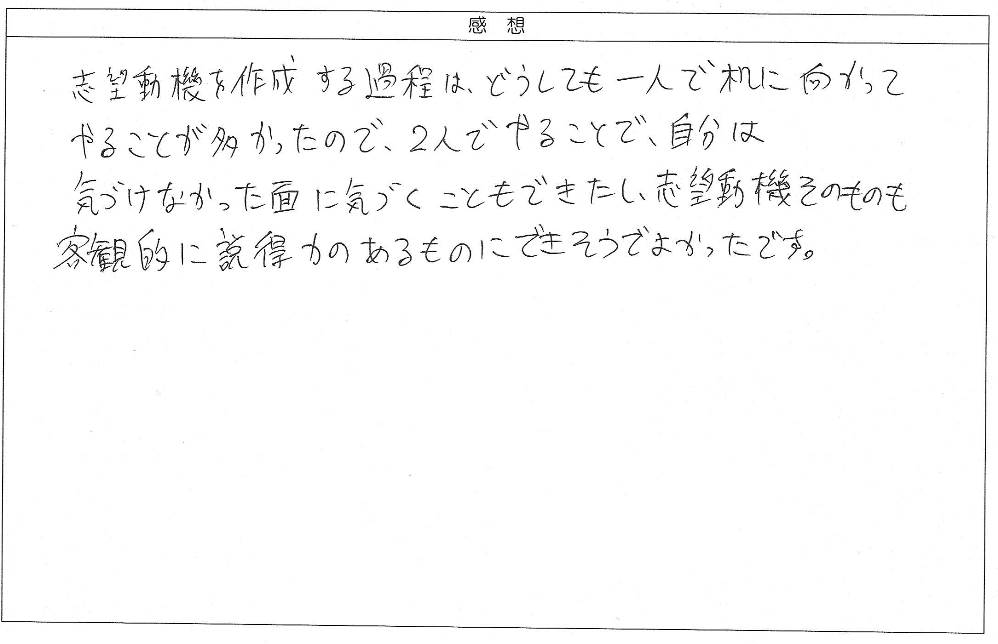 感想
志望動機を作成する過程は、どうしても一人で机に向かって
やることが多かったので、2人でやることで、自分は
気づけなかった面に気づくこともできたし、志望動機そのものも
客観的に説得力のあるものにできそうでよかったです。